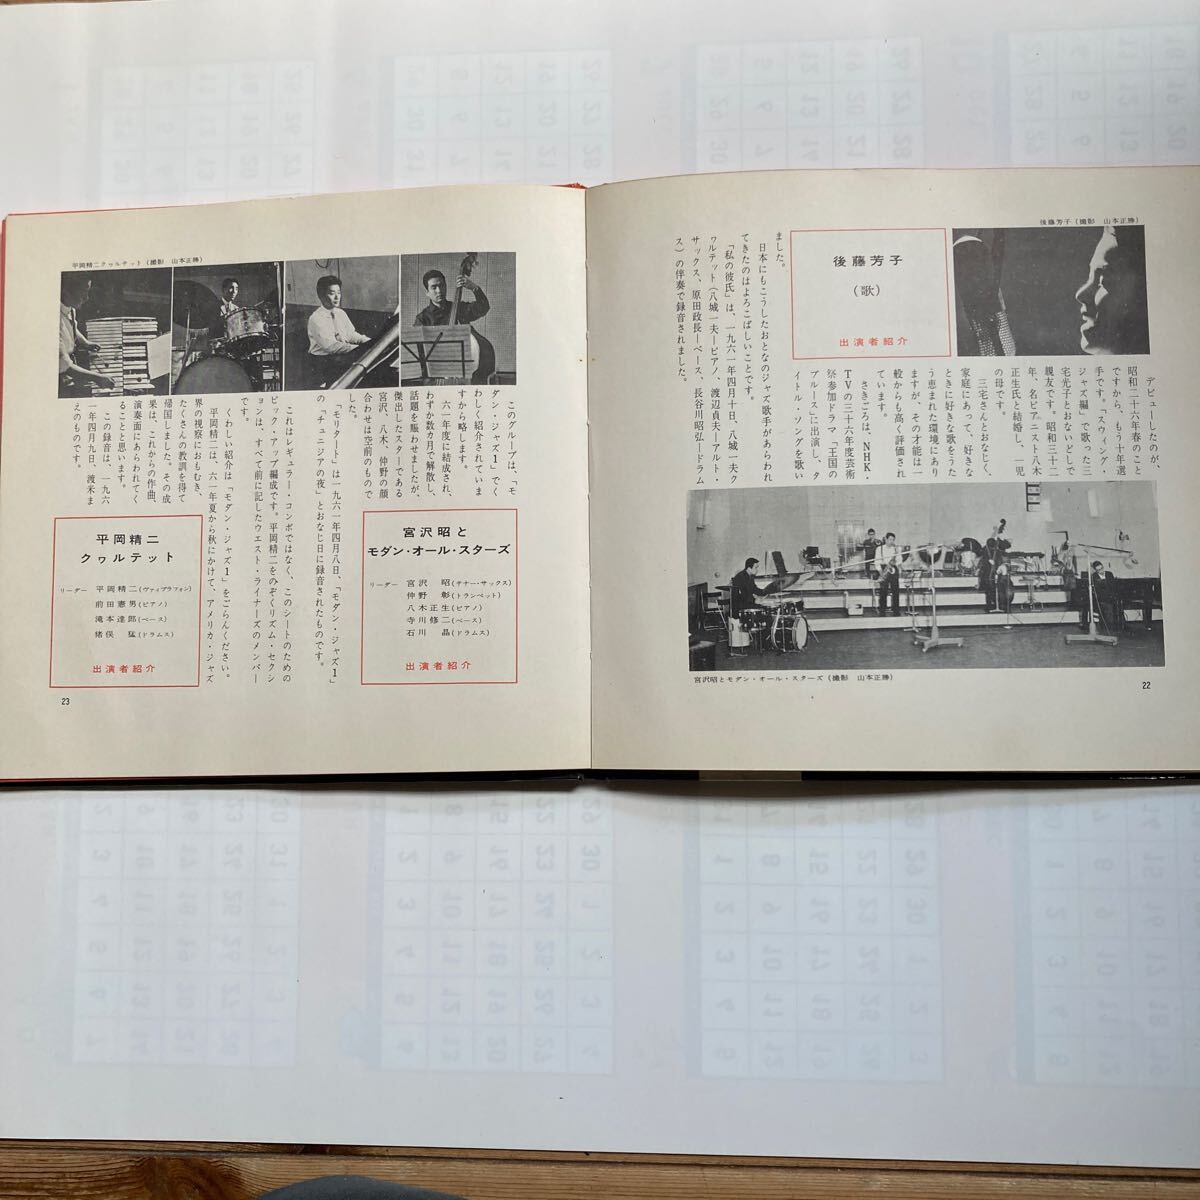 後藤芳子（撮影　山本正勝）
後藤芳子
（歌）
出演者紹介
デビューしたのが、
昭和二十六年春のこと
ですから、もう十年選
手です。「スウィング・
ジャズ編」で歌った三
宅光子とおないどしで
親友です。昭和三十二
年、名ピアニスト八木
正生氏と結婚し、一児
の母です。
三宅さんとおなじく、
家庭にあって、好きな
ときに好きな歌をうた
う恵まれた環境にあり
ますが、その才能は一
般からも高く評価され
ています。
さきごろは、NHK・
TVの三十六年度芸術
祭参加ドラマ「王国の
ブルース」に出演し、タ
イトル・ソングを歌い
ました。
日本にもこうしたおとなのジャズ歌手があらわれ
てきたのはよろこばしいことです。
「私の彼氏」は、一九六一年四月十日、八城一夫ク
ヮルテット（八城一夫―ピアノ、渡辺貞夫―アルト・
サックス、原田政長―ベース、長谷川昭弘―ドラム
ス）の伴奏で録音されました。
宮沢昭とモダン・オール・スターズ（撮影　山本正勝）
22
平岡精二クヮルテット（撮影　山本正勝）
宮沢昭と
モダン・オール・スターズ
リーダー　宮沢　昭（テナー・サックス）
仲野　彰（トランペット）
八木正生（ピアノ）
寺川修二（ベース）
石川　晶（ドラムス）
出演者紹介
このグループは、「モ
ダン・ジャズ1」でく
わしく紹介されていま
すから略します。
六一年度に結成され、
わずか数カ月で解散し、
話題を賑わせましたが、
傑出したスターである
宮沢、八木、仲野の顔
合わせは空前のもので
した。
「モリタート」は一九六一年四月八日、「モダン・ジャズ1」
の「チュニジアの夜」とおなじ日に録音されたものです。
平岡精二
クヮルテット
リーダー　平岡精二（ヴァイブラフォン）
前田憲男（ピアノ）
滝本達郎（ベース）
猪俣　猛（ドラムス）
出演者紹介
これはレギュラー・コンボではなく、このシートのための
ピック・アップ編成です。平岡精二をのぞくリズム・セクシ
ョンは、すべて前に記したウエスト・ライナーズのメンバー
です。
くわしい紹介は「モダン・ジャズ1」をごらんください。
平岡精二は、六一年夏から秋にかけて、アメリカ・ジャズ
界の視察におもむき、
たくさんの教訓を得て
帰国しました。その成
果は、これからの作曲、
演奏面にあらわれてく
ることと思います。
この録音は、一九六
一年四月九日、渡米ま
えのものです。
23